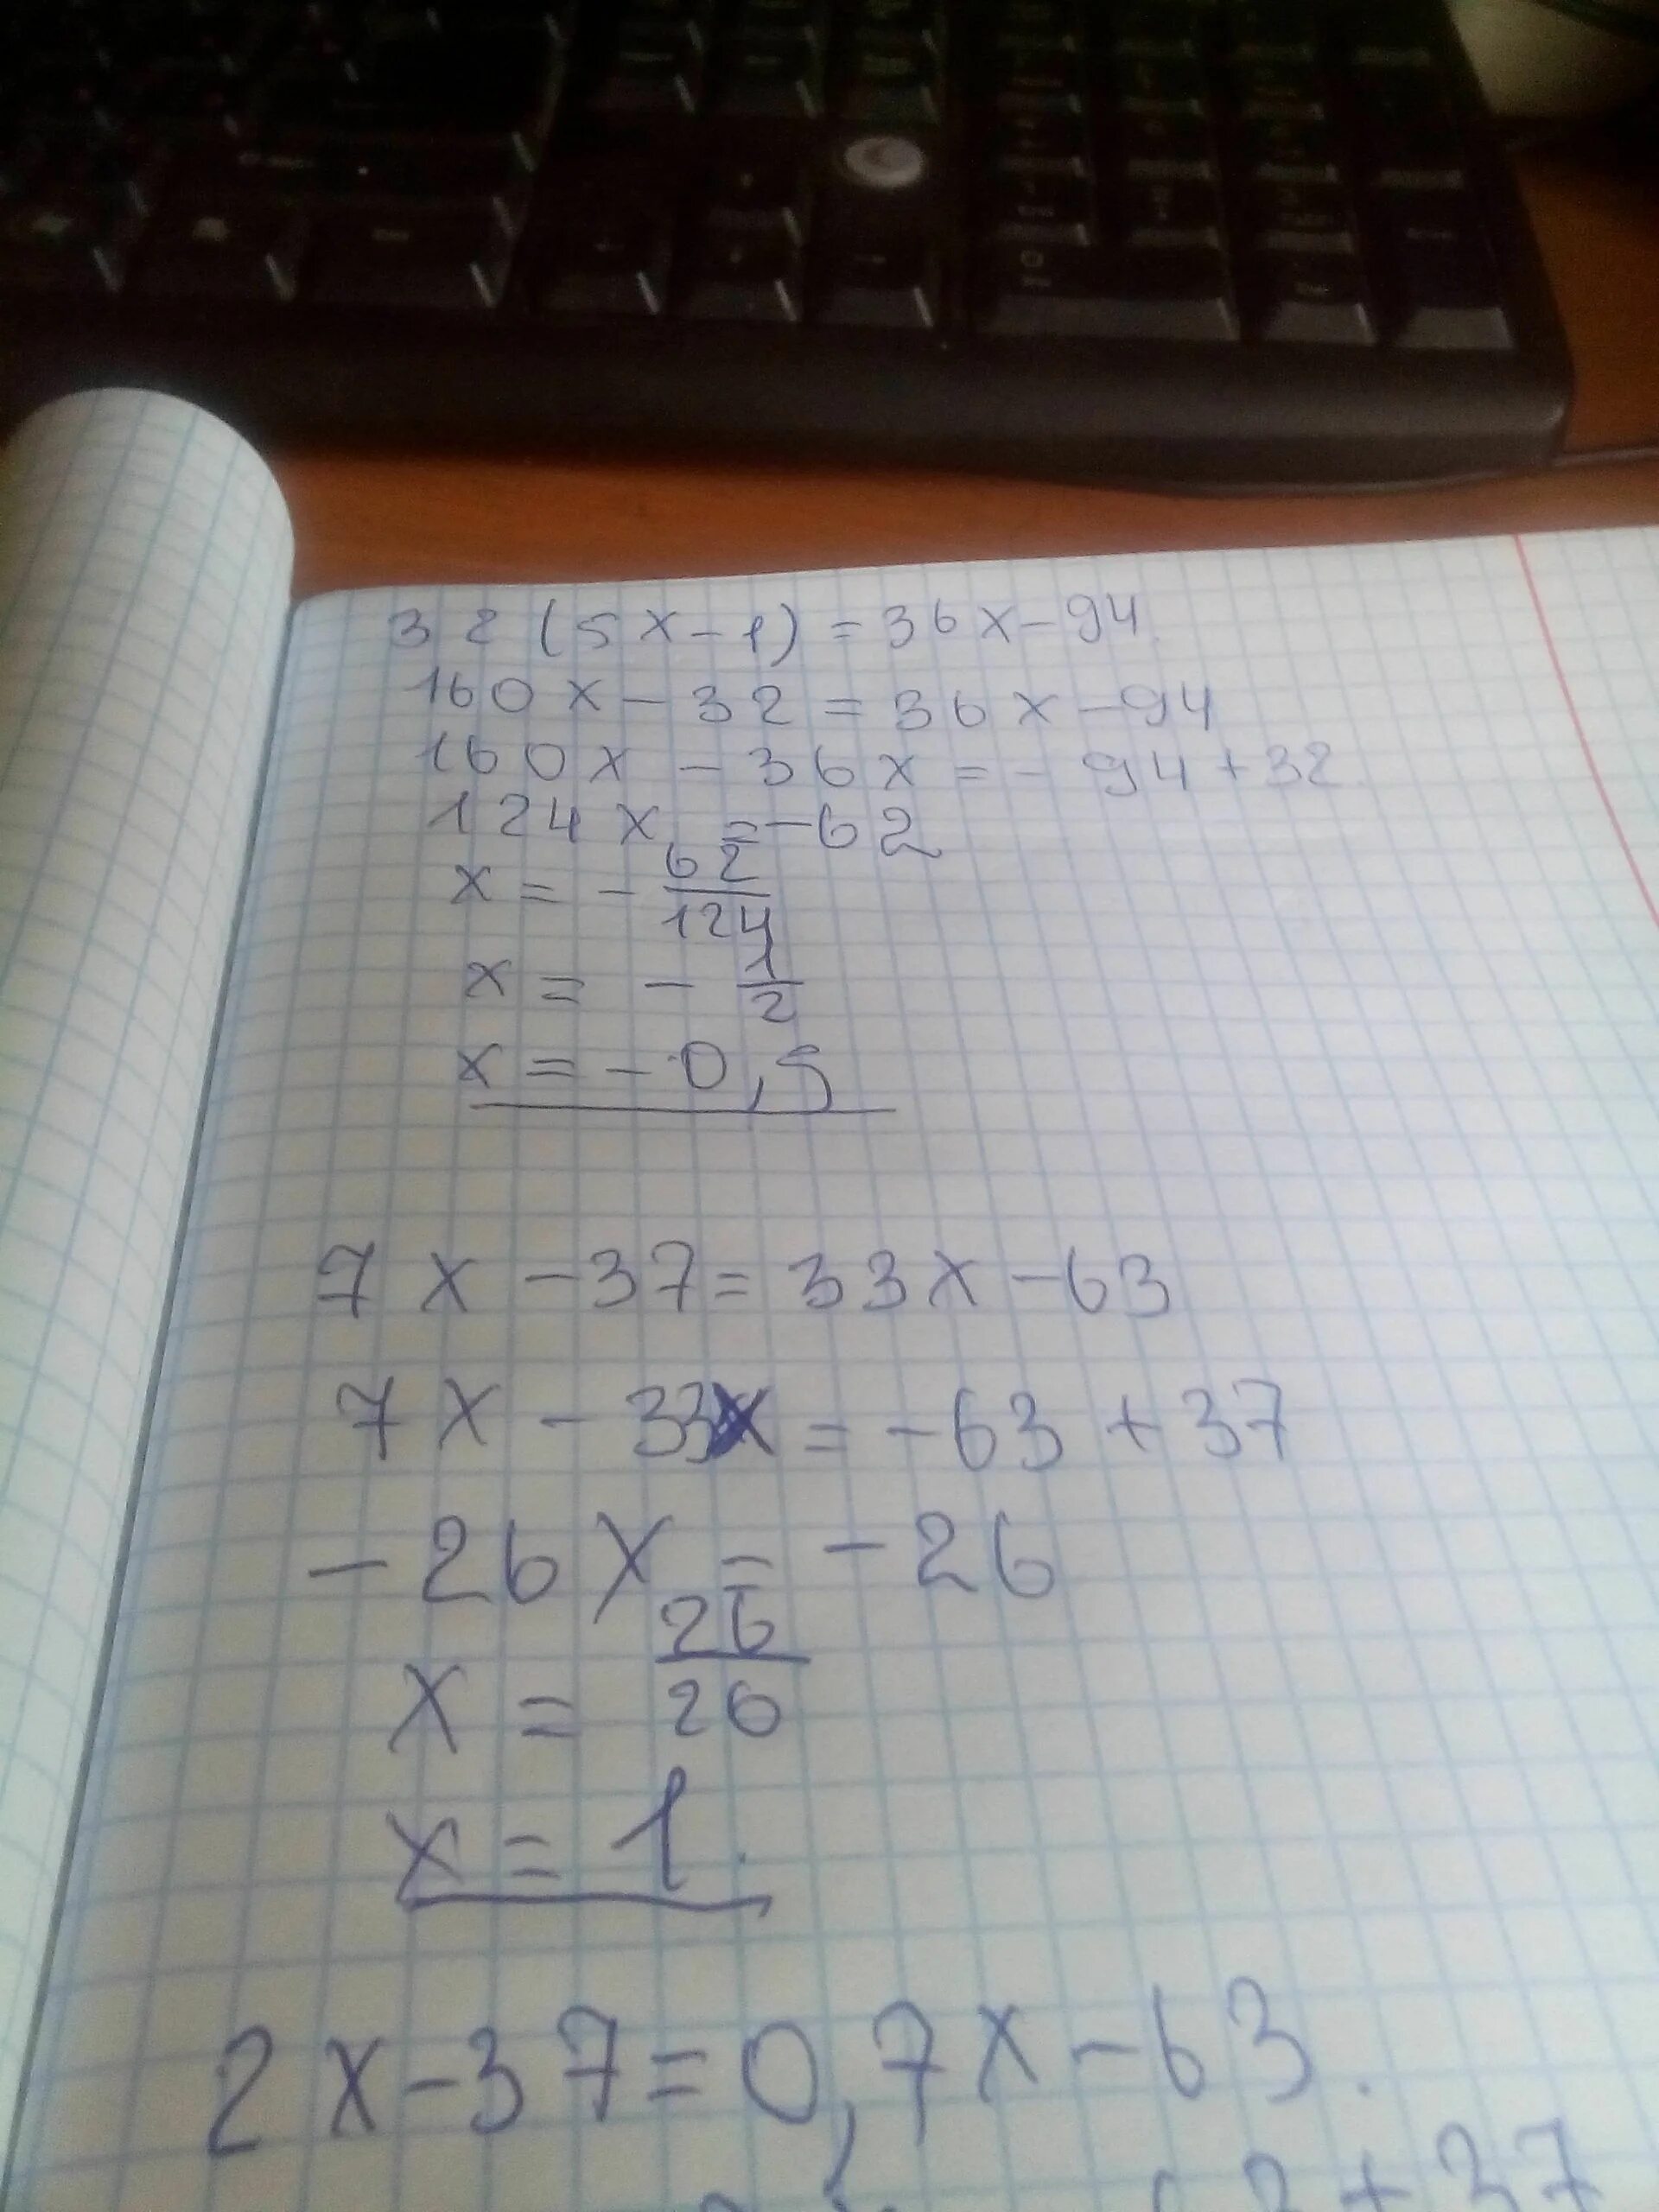 32(5x-1)=36x-94
160x-32=36x-94
160x-36x=-94+32
124x=-62
x=-62/124
x=-1/2
x=-0,5
7x-37=33x-63
7x-33x=-63+37
-26x=-26
x=26/26
x=1.
2x-37=0,7x-63.
+37